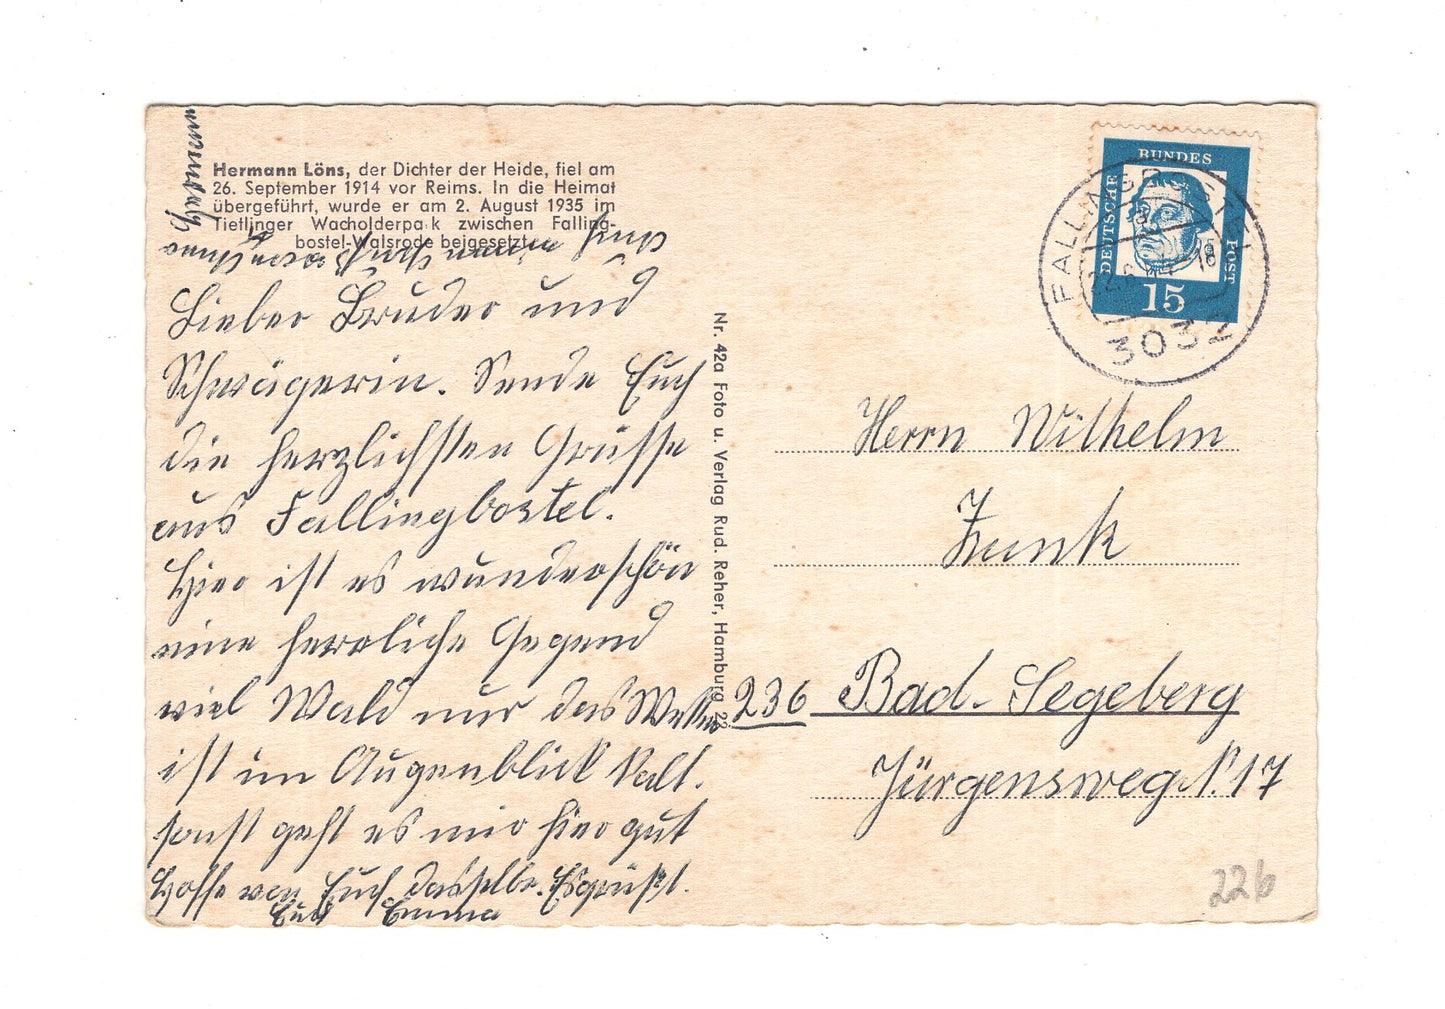 Hermann Löns, der Dichter der Heide, fiel am
26. September 1914 vor Reims. In die Heimat
übergeführt, wurde er am 2. August 1935 im
Tietlinger Wacholderpark zwischen Falling-
bostel-Walsrode beigesetzt.
Lieber Bruder und
Schwägerin. Sende Euch
die herzlichsten Grüsse
aus Fallingbostel.
Hier ist es wunderschön
eine herrliche Gegend
viel Wald nur das Wetter
ist im Augenblick kalt.
sonst geht es mir hier gut
Hoffe von Euch dasselbe. Es grüßt
Euch Emma
Nr. 42a Foto u. Verlag Rud. Reher, Hamburg 22
BUNDES
DEUTSCHE
POST
15
FALLINGBOSTEL
3032
Herrn Wilhelm
Funk
236 Bad-Segeberg
Jürgensweg N. 17
22b